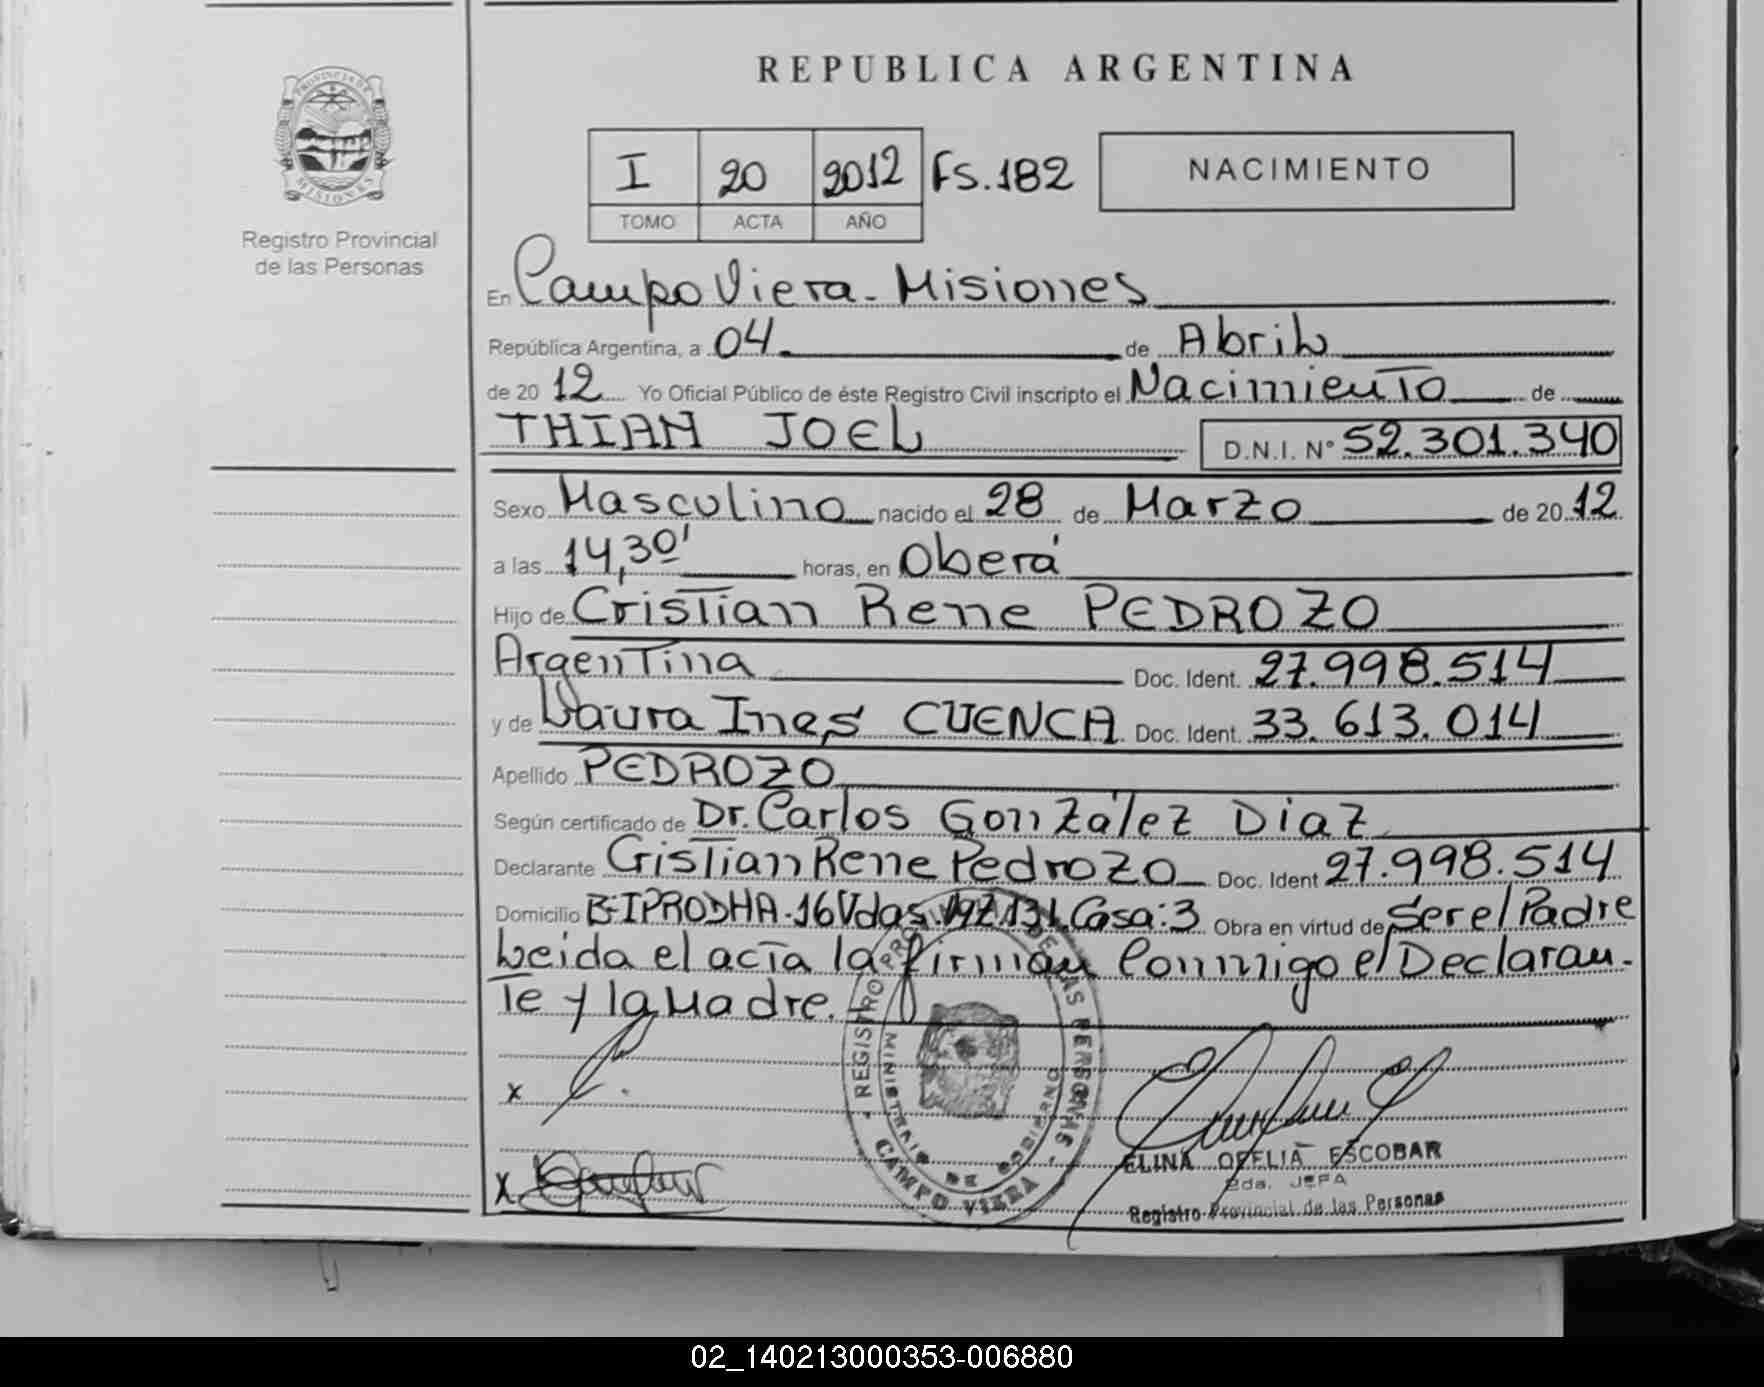 REPUBLICA ARGENTINA
PROVINCIA DE MISIONES
Registro Provincial
de las Personas
I 20 2012 Fs. 182
TOMO ACTA AÑO
NACIMIENTO
En Campo Viera - Misiones
República Argentina, a 04 de Abril
de 2012 Yo Oficial Público de éste Registro Civil inscripto el Nacimiento de
THIAN JOEL D.N.I. Nº 52.301.340
Sexo Masculino nacido el 28 de Marzo de 2012
a las 14,30' horas, en Oberá
Hijo de Cristian Rene PEDROZO
Argentina Doc. Ident. 27.998.514
y de Laura Ines CUENCA Doc. Ident. 33.613.014
Apellido PEDROZO
Según certificado de Dr. Carlos González Diaz
Declarante Cristian Rene Pedrozo Doc. Ident 27.998.514
Domicilio IPRODHA - 16 Vdas. Casa: 3 Obra en virtud de Ser el Padre
Leida el acta la firman Conmigo el Declaran-
Te y la Madre.
x
x
REGISTRO PROVINCIAL DE LAS PERSONAS
MINISTERIO DE GOBIERNO
CAMPO VIERA
ELINA OFELIA ESCOBAR
2da. JEFA
Registro Provincial de las Personas
02_140213000353-006880